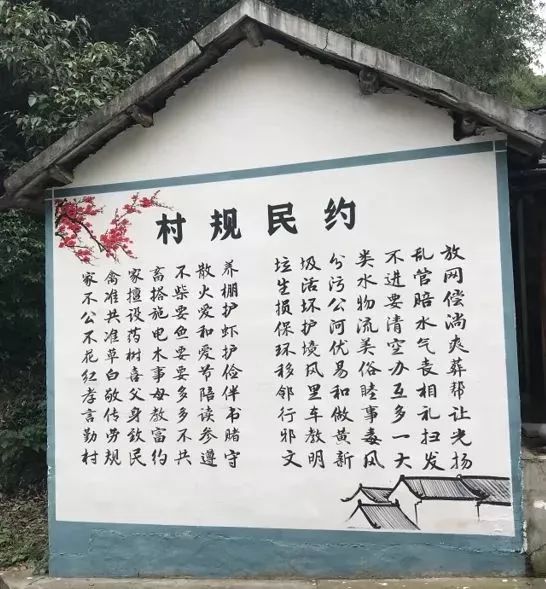 村规民约
家禽家畜不散养
不准擅搭柴火棚
公共设施要爱护
不准药电鱼和虾
花草树木要爱护
红白喜事要节俭
孝敬父母多陪伴
言传身教多读书
勤劳致富不参赌
村规民约共遵守
垃圾分类不乱放
生活污水进管网
损坏公物要赔偿
保护河流清水淌
环境优美空气爽
移风易俗办丧葬
邻里和睦互相帮
行车做事多礼让
邪教黄毒一扫光
文明新风大发扬